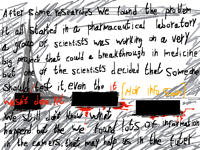 After some researches we found the problem
it all started in a pharmaceutical laboratory
a group of scientists was working on a very
big project that could a breakthrough in medicine
but of the scientists decided that someone
should test it, even tho it
wasn't
We still don't know what
happend but we found lots of information
in the camera, that may help us in the